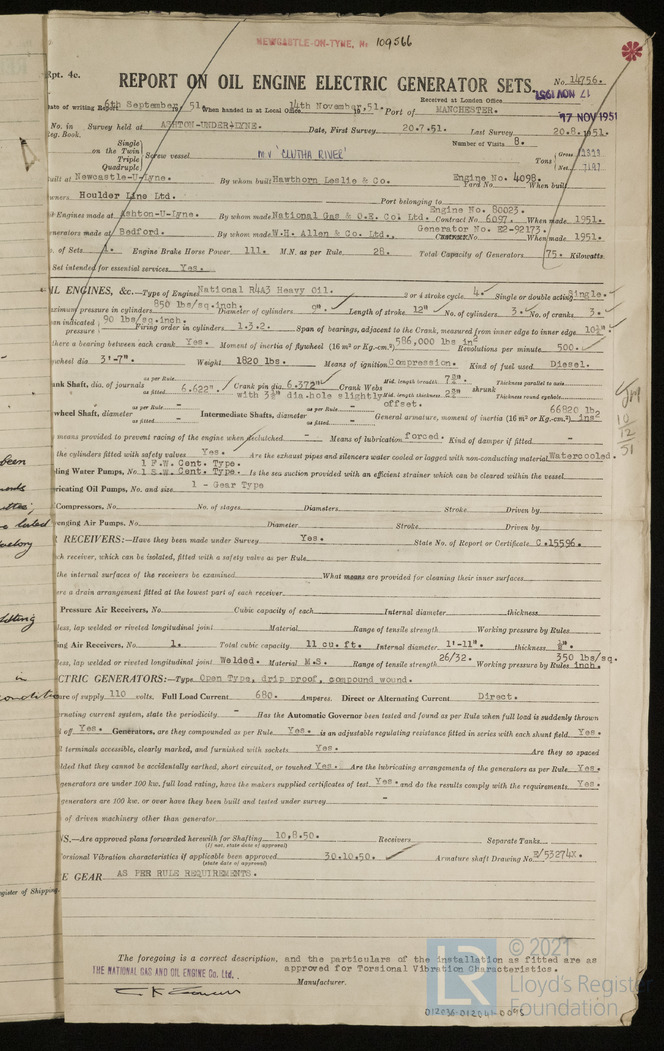 NEWCASTLE-ON-TYNE, No 109566
Rpt. 4c.
REPORT ON OIL ENGINE ELECTRIC GENERATOR SETS.
No. 14756.
Received at London Office 17 NOV 1951
17 NOV 1951
Date of writing Report 6th September, 19 51. When handed in at Local Office 14th November, 19 51. Port of MANCHESTER.
No. in Survey held at ASHTON-UNDER-LYNE. Date, First Survey 20.7.51. Last Survey 20.8.1951.
Reg. Book.
Number of Visits 8.
Single
on the Twin
Triple
Quadruple
Screw vessel MV 'CLUTHA RIVER' Tons Gross
Net
built at Newcastle-U-Lyne. By whom built Hawthorn Leslie & Co. Engine No. 4098. Yard No. When built
wners Houlder Line Ltd. Port belonging to
Engines made at Ashton-U-Lyne. By whom made National Gas & O.E. Co. Ltd. Engine No. 80023. Contract No. 6097. When made 1951.
enerators made at Bedford. By whom made W.H. Allen & Co. Ltd., Generator No. E2-92173. Contract No. When made 1951.
o. of Sets 1. Engine Brake Horse Power 111. M.N. as per Rule 28. Total Capacity of Generators 75. Kilowatts.
Set intended for essential services Yes.
IL ENGINES, &c.—Type of Engines National R4A3 Heavy Oil. 2 or 4 stroke cycle 4. Single or double acting Single.
ximum pressure in cylinders 850 lbs/sq.inch. Diameter of cylinders 9" Length of stroke 12" No. of cylinders 3. No. of cranks 3.
an indicated pressure 90 lbs/sq.inch. Firing order in cylinders 1.3.2. Span of bearings, adjacent to the Crank, measured from inner edge to inner edge 10¼"
there a bearing between each crank Yes. Moment of inertia of flywheel (16 m² or Kg.-cm.²) 586,000 lbs in² Revolutions per minute 500.
wheel dia 3'-7". Weight 1820 lbs. Means of ignition Compression. Kind of fuel used Diesel.
ank Shaft, dia. of journals as per Rule as fitted 6.622". Crank pin dia. 6.372" Crank Webs Mid. length breadth Mid. length thickness shrunk Thickness parallel to axis Thickness round eyehole
with dia.hole slightly offset.
wheel Shaft, diameter as per Rule – as fitted – Intermediate Shafts, diameter as per Rule – as fitted – General armature, moment of inertia (16 m² or Kg.-cm.²) 66820 lb ins²
means provided to prevent racing of the engine when declutched – Means of lubrication forced. Kind of damper if fitted –
the cylinders fitted with safety valves Yes. Are the exhaust pipes and silencers water cooled or lagged with non-conducting material Watercooled.
1 F.W. Cent. Type.
ling Water Pumps, No. 1 S.W. Cent. Type. Is the sea suction provided with an efficient strainer which can be cleared within the vessel
ricating Oil Pumps, No. and size 1 - Gear Type
Compressors, No. No. of stages Diameters Stroke Driven by
enging Air Pumps, No. Diameter Stroke Driven by
RECEIVERS:—Have they been made under Survey Yes. State No. of Report or Certificate C.15596.
ch receiver, which can be isolated, fitted with a safety valve as per Rule
the internal surfaces of the receivers be examined What means are provided for cleaning their inner surfaces
ere a drain arrangement fitted at the lowest part of each receiver
Pressure Air Receivers, No. Cubic capacity of each Internal diameter thickness
less, lap welded or riveted longitudinal joint Material Range of tensile strength Working pressure by Rules
ing Air Receivers, No. 1. Total cubic capacity 11 cu.ft. Internal diameter 1'-11" thickness ½"
less, lap welded or riveted longitudinal joint Welded. Material M.S. Range of tensile strength 26/32. Working pressure by Rules 350 lbs/sq.inch.
CTRIC GENERATORS:—Type Open Type, drip proof, compound wound.
sure of supply 110 volts. Full Load Current 680. Amperes. Direct or Alternating Current Direct.
ernating current system, state the periodicity – Has the Automatic Governor been tested and found as per Rule when full load is suddenly thrown
off Yes. Generators, are they compounded as per Rule Yes. is an adjustable regulating resistance fitted in series with each shunt field Yes.
l terminals accessible, clearly marked, and furnished with sockets Yes. Are they so spaced
lded that they cannot be accidentally earthed, short circuited, or touched Yes. Are the lubricating arrangements of the generators as per Rule Yes.
generators are under 100 kw. full load rating, have the makers supplied certificates of test Yes. and do the results comply with the requirements Yes.
generators are 100 kw. or over have they been built and tested under survey –
of driven machinery other than generator
NS.—Are approved plans forwarded herewith for Shafting 10.8.50. Receivers Separate Tanks
(If not, state date of approval)
Torsional Vibration characteristics if applicable been approved 30.10.50. Armature shaft Drawing No. E/53274X.
(state date of approval)
E GEAR AS PER RULE REQUIREMENTS.
The foregoing is a correct description, and the particulars of the installation as fitted are as
approved for Torsional Vibration Characteristics.
THE NATIONAL GAS AND OIL ENGINE Co. Ltd.,
Manufacturer.
10
12
51
been
factory
in
egister of Shipping
LR
© 2021
Lloyd's Register
Foundation
012036-012041-0095